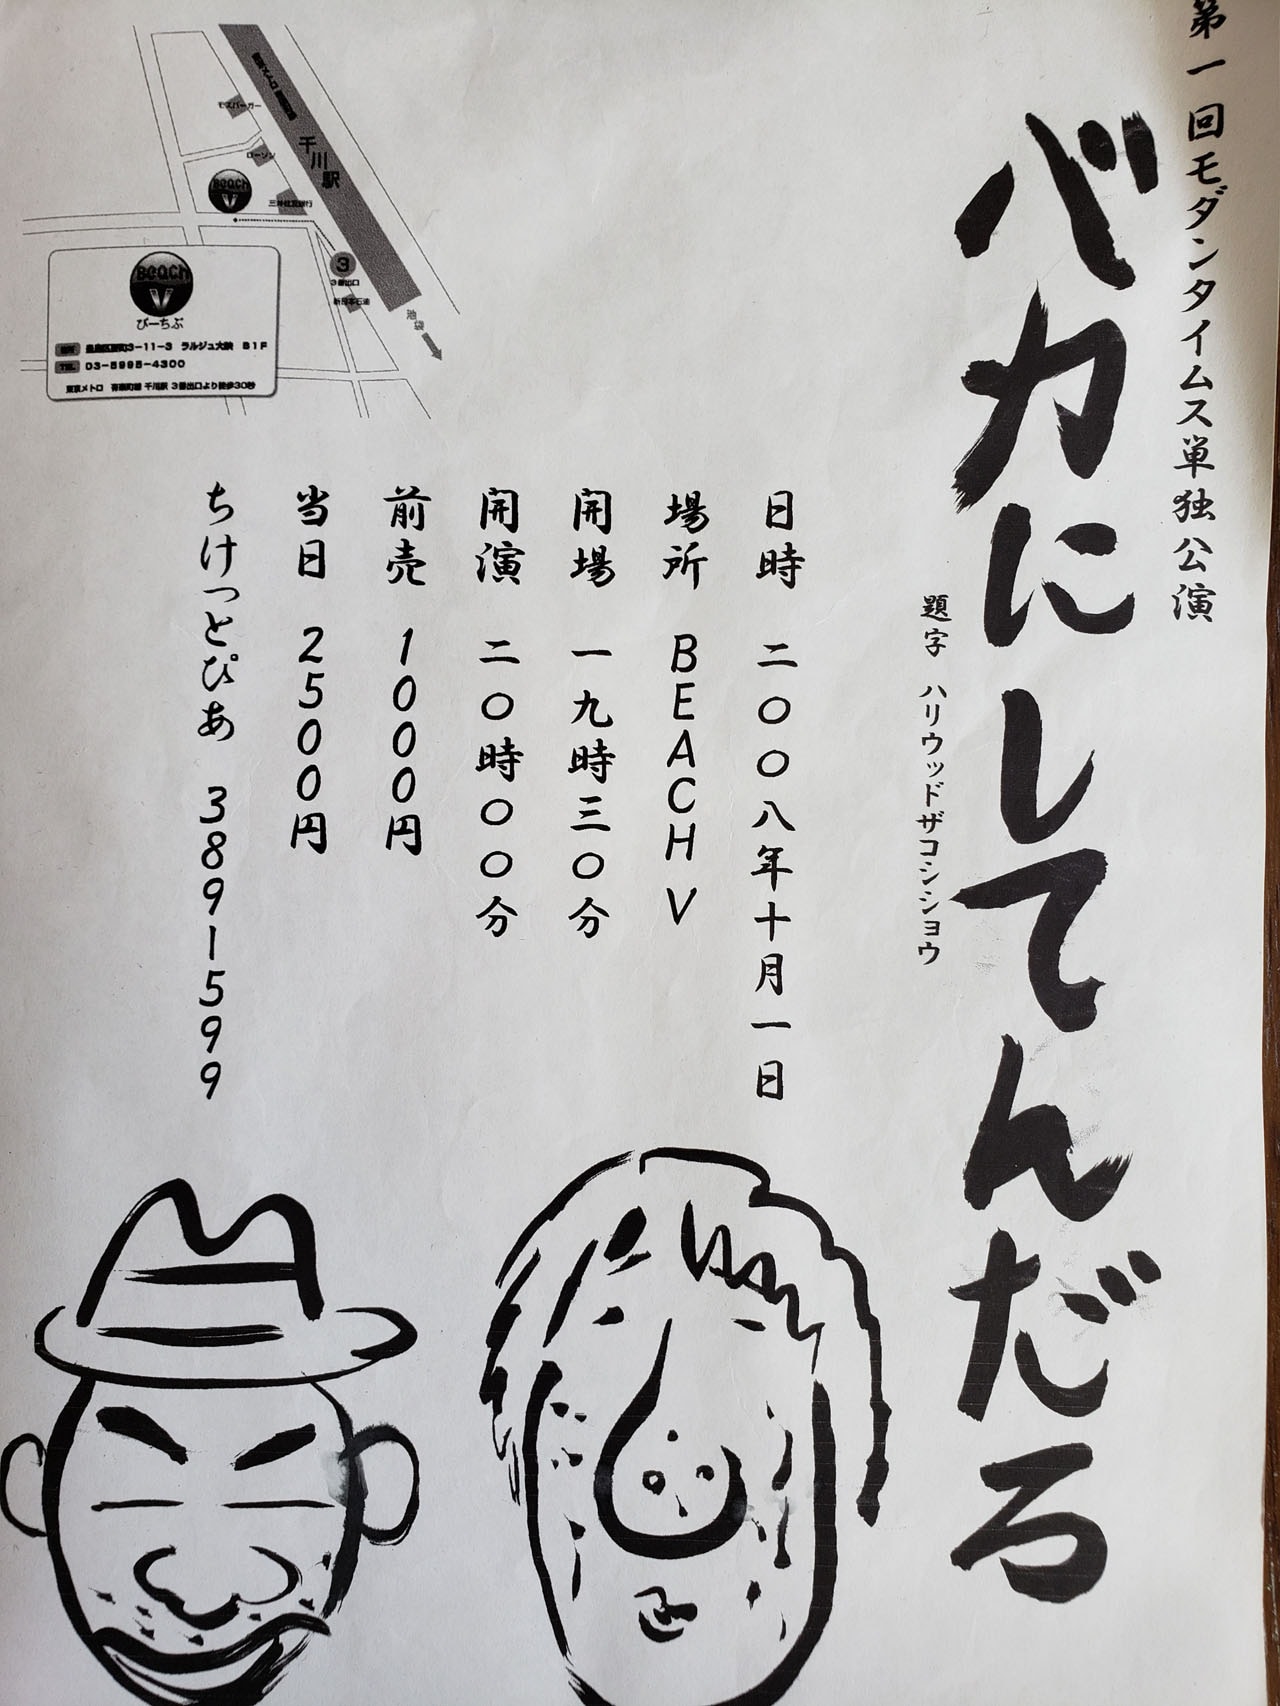 第一回モダンタイムス単独公演
バカにしてんだろ
題字 ハリウッドザコシショウ
日時 二〇〇八年十月一日
場所 BEACH V
開場 一九時三〇分
開演 二〇時〇〇分
前売 1000円
当日 2500円
ちけっとぴあ 389-599
千川駅
モスバーガー
ローソン
BeaCh
V
三井住友銀行
3
3番出口
新日本石油
池袋
BeaCh
V
びーちぶ
3-11-3 ラルジュ大鉄 B1F
TEL 03-5995-4300
東京メトロ 有楽町線 千川駅 3番出口より徒歩30秒